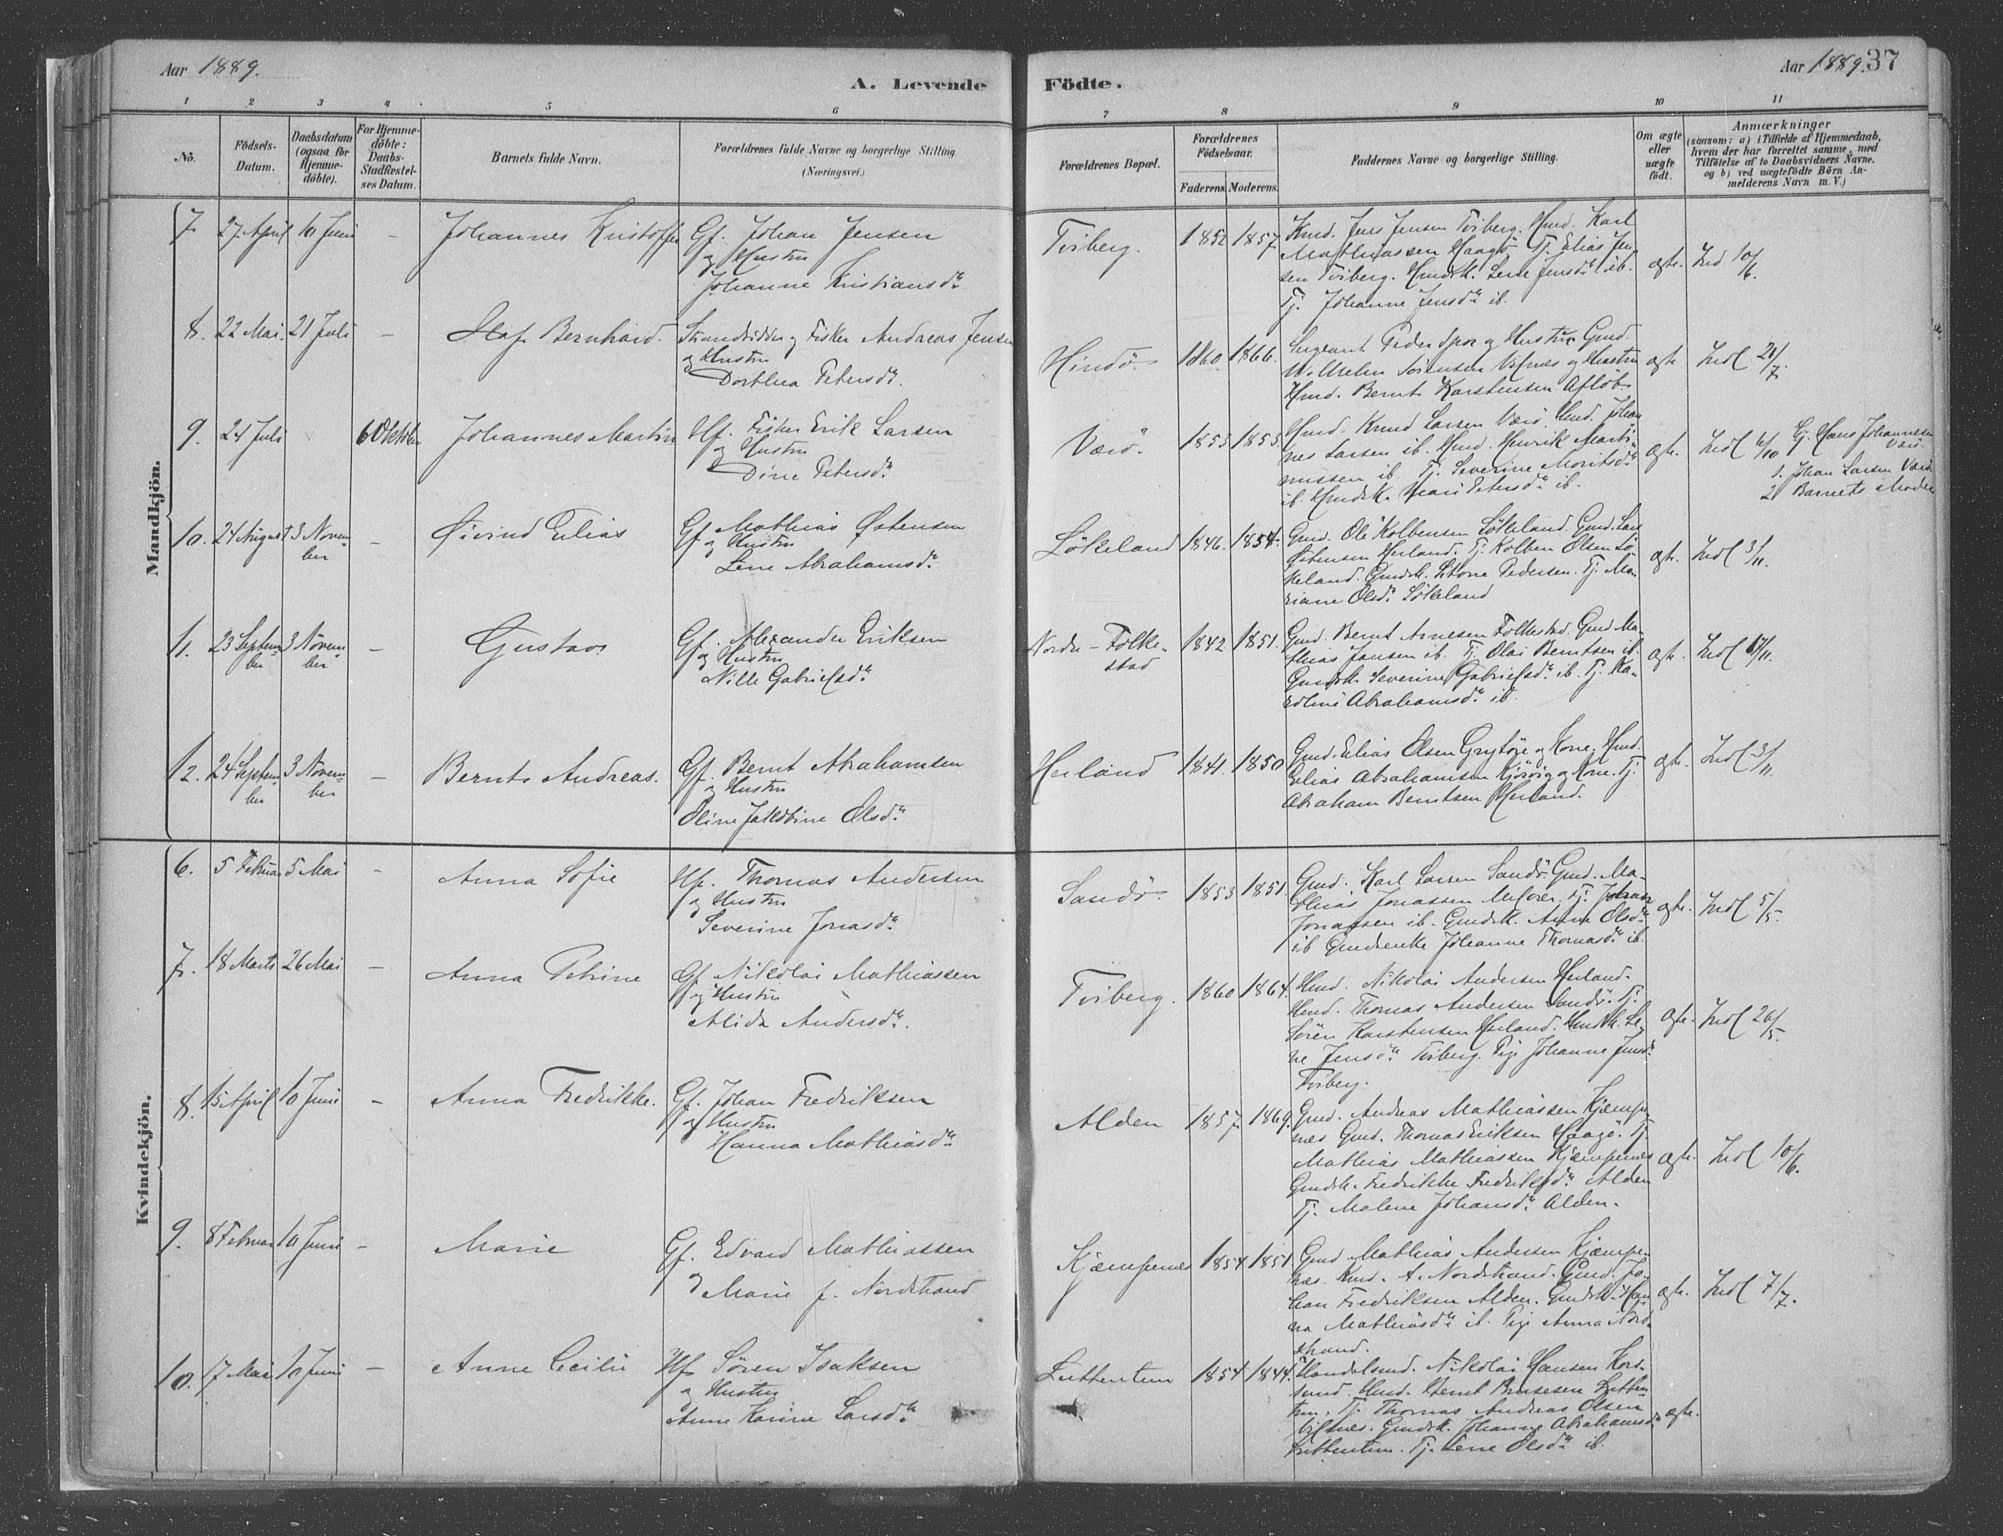 Aar 1889.
A. Levende
Födte.
Aar 1889. 37
1 2 3 4 5 6 7 8 9 10 11
No.
Födsels-Datum.
Daabsdatum (ogsaa for Hjemme-döbte).
For Hjemme-döbte: Daabs-Stadfæstel-ses Datum.
Barnets fulde Navn.
Forældrenes fulde Navne og borgerlige Stilling (Næringsvei.)
Forældrenes Bopæl.
Forældrenes Födselsaar.
Faderens. Moderens.
Faddernes Navne og borgerlige Stilling.
Om ægte eller uægte födt.
Anmærkninger
(saasom: a) i Tilfælde af Hjemmedaab,
hvem der har forrettet samme, med
Tilföielse af to Daabsvidners Navne,
og b) ved uægtefödte Börn An-
melderens Navn m. V.)
Mandkjön.
7. 27 April 10 Juni - Johannes Kristoffer
Gf. Johan Jensen
og Hustru
Johanne Kristiansdr
Tviberg. 1852 1857.
Kmd. Jens Jensen Tviberg. Hmd. Karl
Mathiassen Haagö Tj. Elias Jen-
sen Tviberg. Hmdsk. Lene Jensdr ib.
Tj. Johanne Jensdr ib.
ægte. Indl 10/6.
8. 22 Mai. 21 Juli - Olaf Bernhard.
Strandsidder og Fisker Andreas Jensen
og Hustru
Dorthea Petersdr.
Hindö 1860. 1866.
Sergeant Peder Spor og Hustru Gmd.
Wilhelm Sörensen Vilnes og Hustru
Hmd. Bernt Karstensen Aflöb
ægte Indl 21/7.
9. 24 Juli 6 Oktober Johannes Martin
Hf. Fisker Erik Larsen
og Hustru
Dine Petersdr
Værö. 1853 1853.
Hmd. Knud Larsen Værö. Hmd. Johan
nes Larsen ib. Hmd. Henrik Marti-
nussen ib. Tj. Severine Moritsdr
ib. Hmdsk. Mari Petersdr ib.
ægte. Indl 6/10 Gj. Hans Johannesen
Værö
1. Johan Larsen Værö
2 Barnets Moder
10. 24 August 3 Novem-ber - Öivind Elias
Gf. Mathias Östensen
og Hustru
Lene Abrahamsdr
Lökeland 1846. 1854.
Gmd. Ole Kolbensen Lökeland. Gmd. Lars
Östensen Herland. Tj. Kolben Olsen Lö-
keland. Gmdsk. Pedersen. Tj. Ma-
riane Olsdr Lökeland
ægte. Indl 3/11.
11. 23 Septem-ber 3 Novem-ber - Gustav
Gf. Alexander Eriksen
og Hustru
Nille Gabrielsdr
Nordre-Folke-stad 1842 1851.
Gmd. Bernt Arnesen Folkestad. Gmd. Ma-
thias Jansen ib. Tj. Olai Berntsen ib.
Gmdsk. Severine Gabrielsdr ib. Tj. Ka-
roline Abrahamsdr ib.
ægte. Indl /11.
12. 24 Septem-ber 3 Novem-ber - Bernt Andreas.
Gf. Bernt Abrahamsen
og Hustru
Oline Jakobine Olsdr
Herland 1841. 1850
Gmd. Elias Olsen Grytöje og Kone. Hmd.
Elias Abrahamsen Kjörvig og Kone. Tj.
Abraham Berntsen Herland.
ægte. Indl 3/11.
Kvindekjön.
6. 5 Februar 5 Mai - Anna Sofie
Hf. Thomas Andersen
og Hustru
Severine Jonasdr
Sandö 1853 1851
Gmd. Karl Larsen Sandö Gmd. Ma-
thias Jonassen Melvær. Tj. Johan
Jonassen ib. Gmdsk. Anne Olsdr
ib Gmdsenke Johanne Thomasdr ib.
ægte. Indl 5/5.
7. 18 Marts 26 Mai - Anna Petrine
Gf. Nikolai Mathiassen
og Hustru
Alida Andersdr.
Tviberg. 1860 1864.
Hmd. Nikolai Andersen Herland.
Hmd. Thomas Andersen Sandö. Tj.
Sören Karstensen Herland. Hmdsk. Le-
ne Jensdr Tviberg. Pige Johanne Jensdr
Tviberg.
ægte. Indl 26/5.
8. 15 April 10 Juni - Anna Fredrikke.
Gf. Johan Fredriksen
og Hustru
Hanna Mathiasdr
Alden 1857. 1869.
Gmd. Andreas Mathiassen Kjæmpe-
nes Gmd. Thomas Eriksen Haagö. Tj.
Mathias Mathiassen Kjæmpenes
Gmdsk. Fredrikke Fredriksdr Alden
Tj. Malene Johansdr Alden.
ægte. Indl 10/6.
9. 8 Februar 10 Juni - Marie
Gf. Edvard Mathiassen
og Marie f. Nordstrand
Kjæmpenes 1854 1851.
Gmd Mathias Andersen Kjæmpe-
nes. Kmd. A. Nordstrand. Gmd. Jo-
han Fredriksen Alden. Gmdsk. Han
na Mathiasdr ib. Pige Anna Nord-
strand.
ægte. Indl 7/7.
10. 17 Mai 10 Juni - Anne Cecilie
Hf Sören Isaksen
og Hustru
Anne Karine Larsdr
Luttentun 1854 1844.
Handelsmd. Nikolai Hansen Kors-
sund. Hmd. Bernt Brusesen Lutten-
tun. Tj. Thomas Andreas Olsen
Vilnes. Gmdsk. Johanne Abrahamsdr
Luttentun. Tj. Lene Olsdr ib.
ægte.